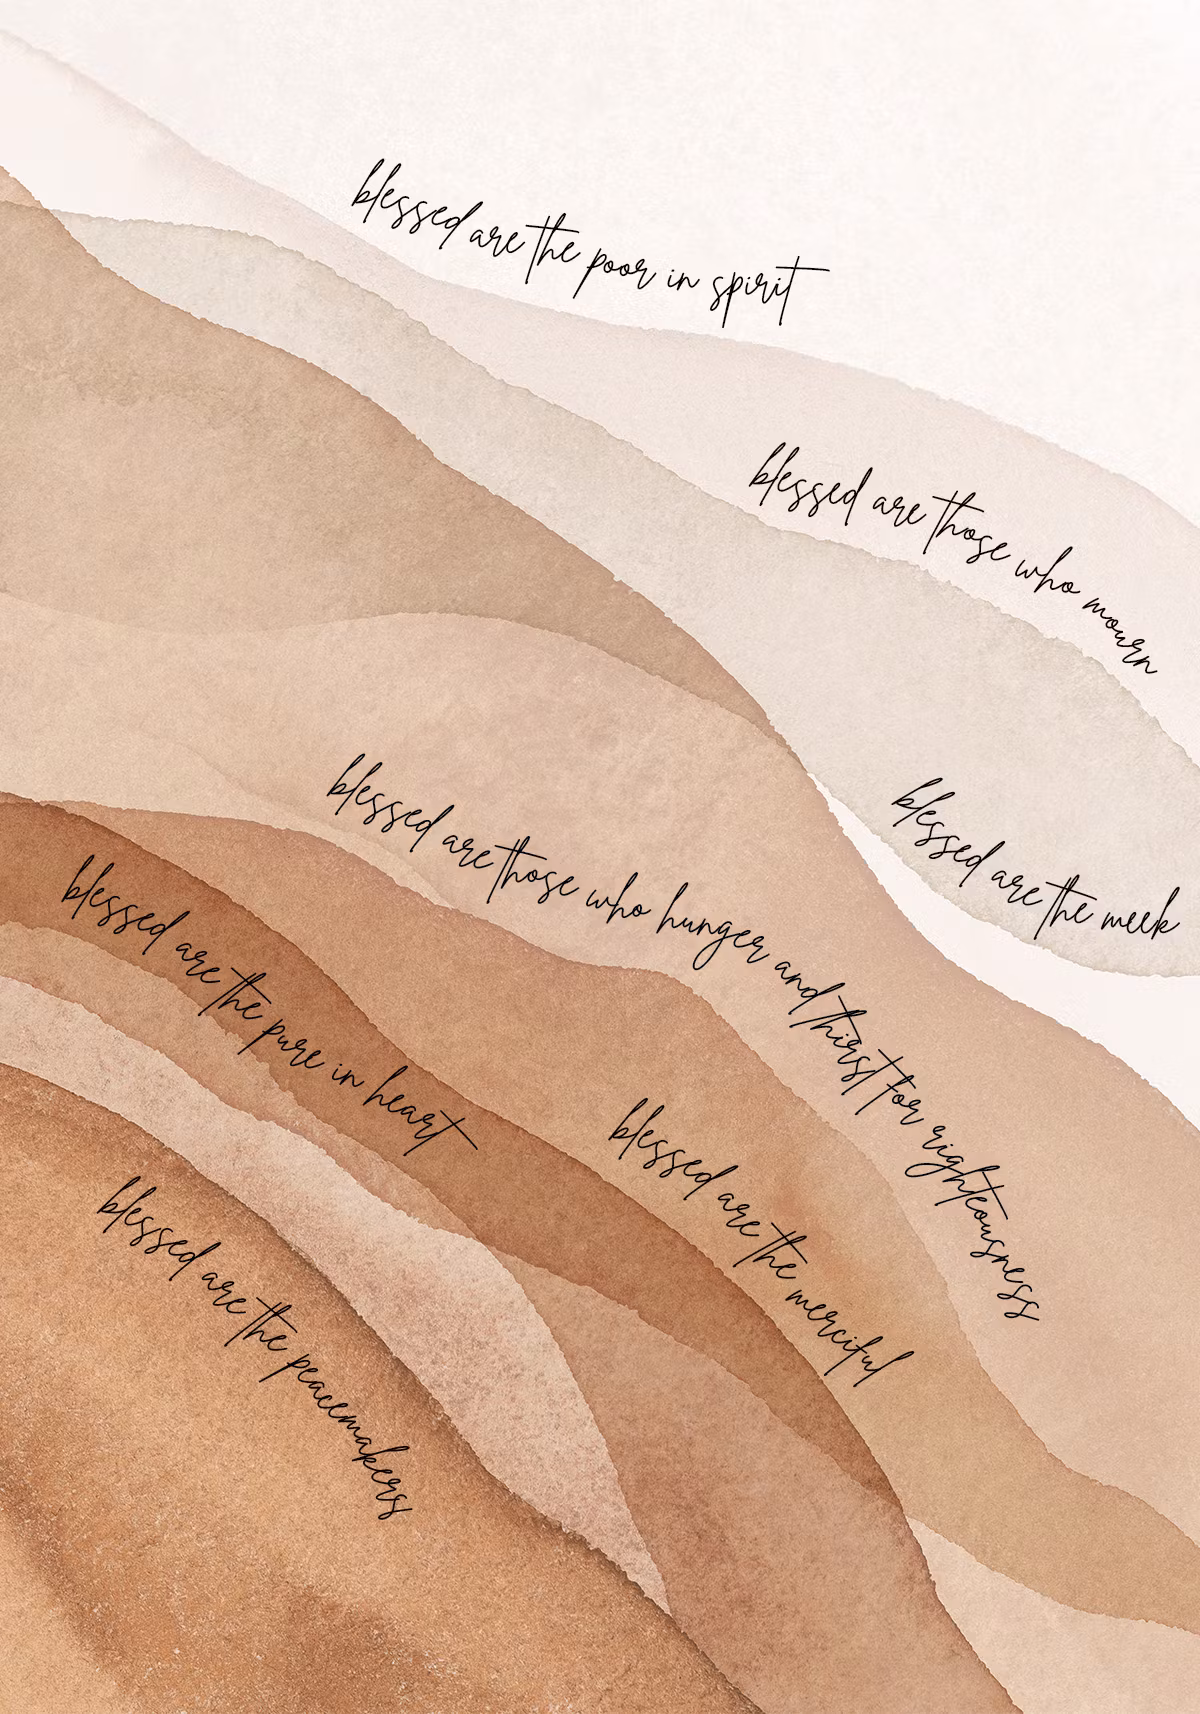 blessed are the poor in spirit
blessed are those who mourn
blessed are the meek
blessed are those who hunger and thirst for righteousness
blessed are the merciful
blessed are the pure in heart
blessed are the peacemakers